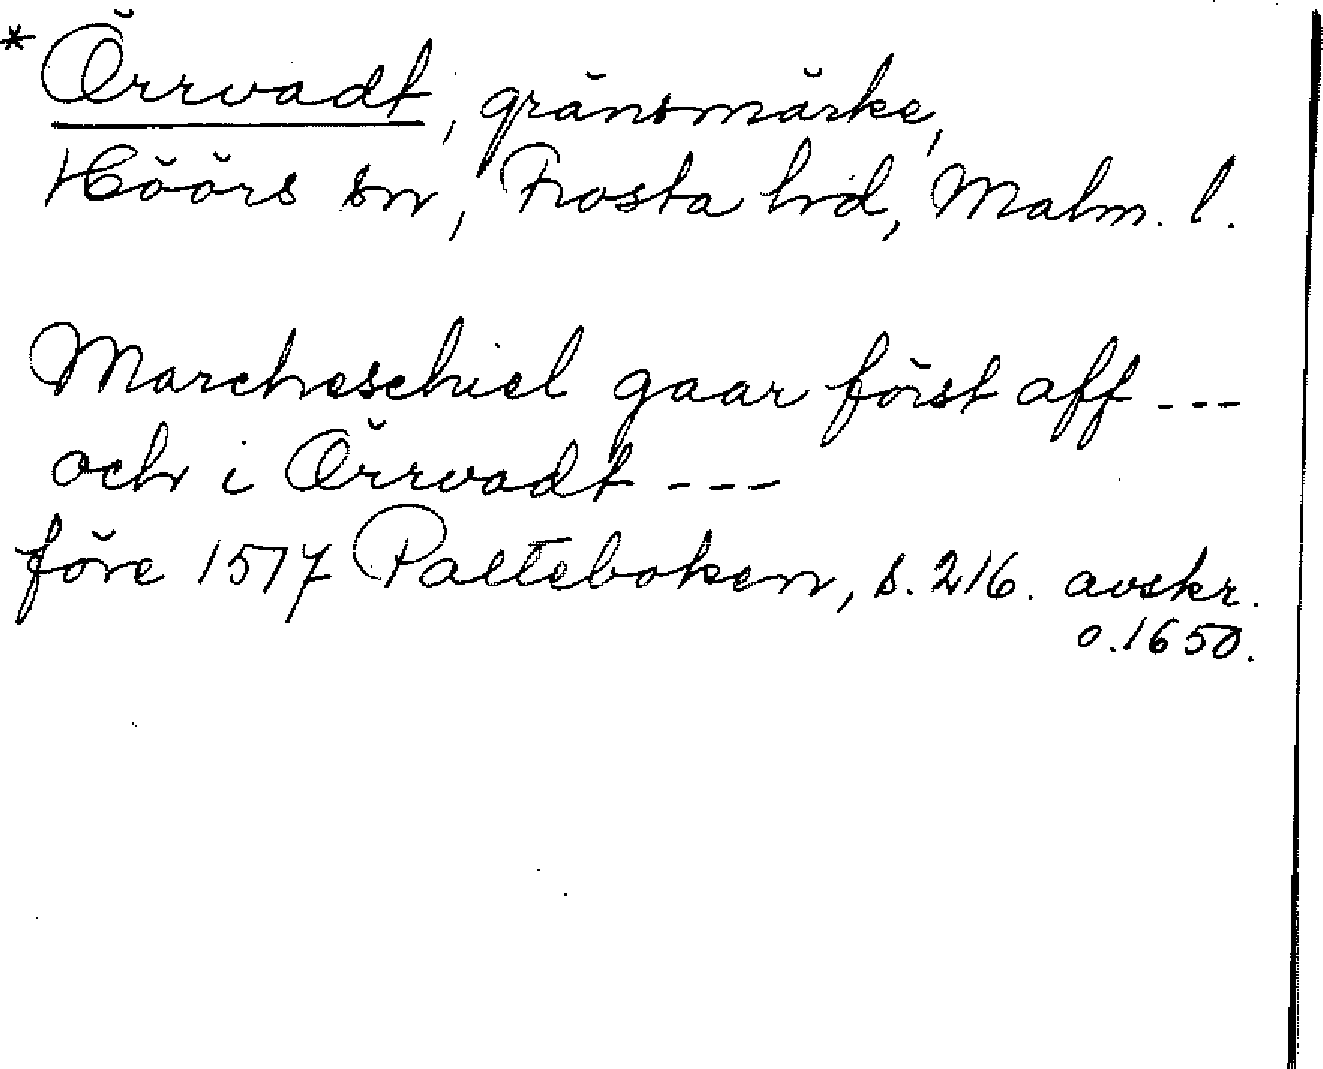 *Örrvadt, gränsmärke,
Höörs sn, Frosta hd, Malm. l.
Marcheschiel gaar först aff ---
och i Örrvadt ---
före 1517 Palteboken, s. 216. avskr.
o. 1650.